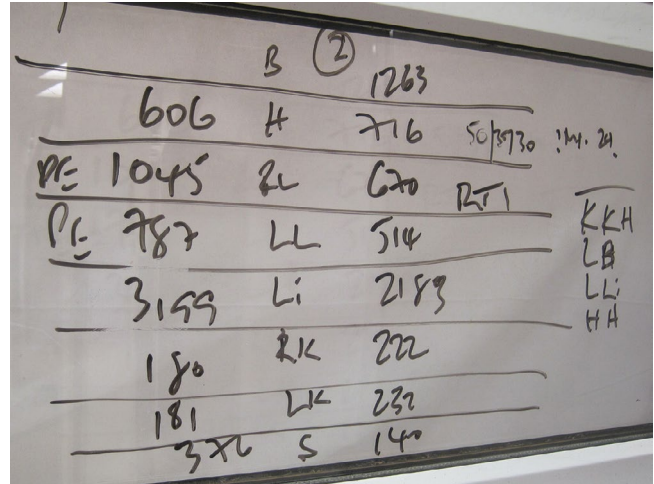 B 2 1263
606 H 716 50/35/30
PE 1045 RL 670 RT1
PE 787 LL 514
3199 Li 2183
180 RK 222
181 LK 232
376 S 140
KKH
LB
LLi
HH